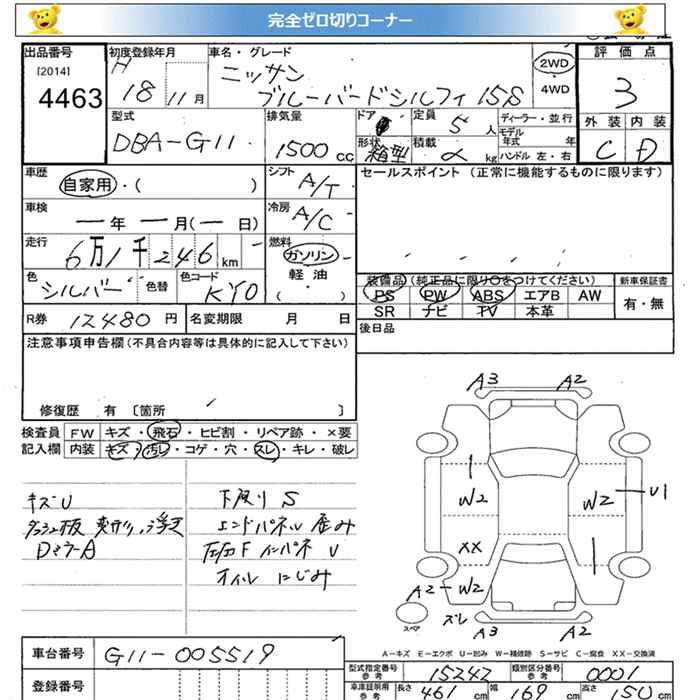 完全ゼロ切りコーナー
出品番号 初度登録年月 車名・グレード 評価点
[2014] H ニッサン 2WD
4463 18 11月 ブルーバードシルフィ 15S 4WD 3
型式 排気量 ドア 定員 5人 ディーラー・並行 外装 内装
DBA-G11 1500cc 形状 箱型 積載 kg モデル年式 年 C D
ハンドル 左・右
車歴 シフト セールスポイント (正常に機能するものに限ります)
自家用・( ) A/T
車検 冷房
ー年 ー月(ー日) A/C
走行 燃料
6万1千246km ガソリン
色 色替 色コード 軽油
シルバー KY0 ( )
装備品(純正品に限り○をつけてください) 新車保証書
PS PW ABS エアB AW 有・無
SR ナビ TV 本革
R券 12480円 名変期限 月 日 後日品
注意事項申告欄(不具合内容等は具体的に記入して下さい)
修復歴 有 〔箇所 〕
検査員 FW キズ・飛石・ヒビ割・リペア跡・×要
記入欄 内装 キズ・汚レ・コゲ・穴・スレ・キレ・破レ
キズU 下廻り S
エンドパネル 歪み
DミラーA インパネ U
オイル にじみ
A3 A2
W2 W2 U1
XX
A2 W2
スペア ズレ A3 A2
A-キズ E-エクボ U-凹み W-補修跡 S-サビ C-腐食 XX-交換済
車台番号 G11-005519
登録番号
型式指定番号 参考 15242 類別区分番号 参考 0001
車庫証明用 参考 長さ 461cm 幅 169cm 高さ 150cm